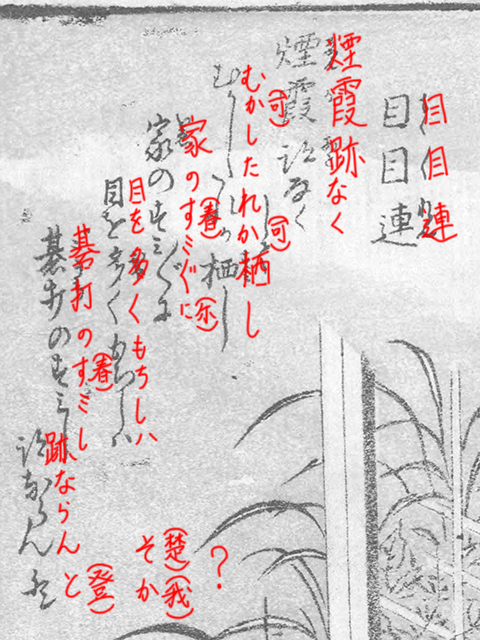 目目連
目目連
煙霞跡なく
煙霞跡なく
むか(可)したれか(可)栖し
むかしたれか栖し
家のす(春)ミぐに(尓)
家のすミぐに
目を多くもちしハ
目を多くもちしハ
碁打のす(春)ミし
碁打のすミし
跡ならんと(登)
跡ならん
そ(楚)か(我)
?